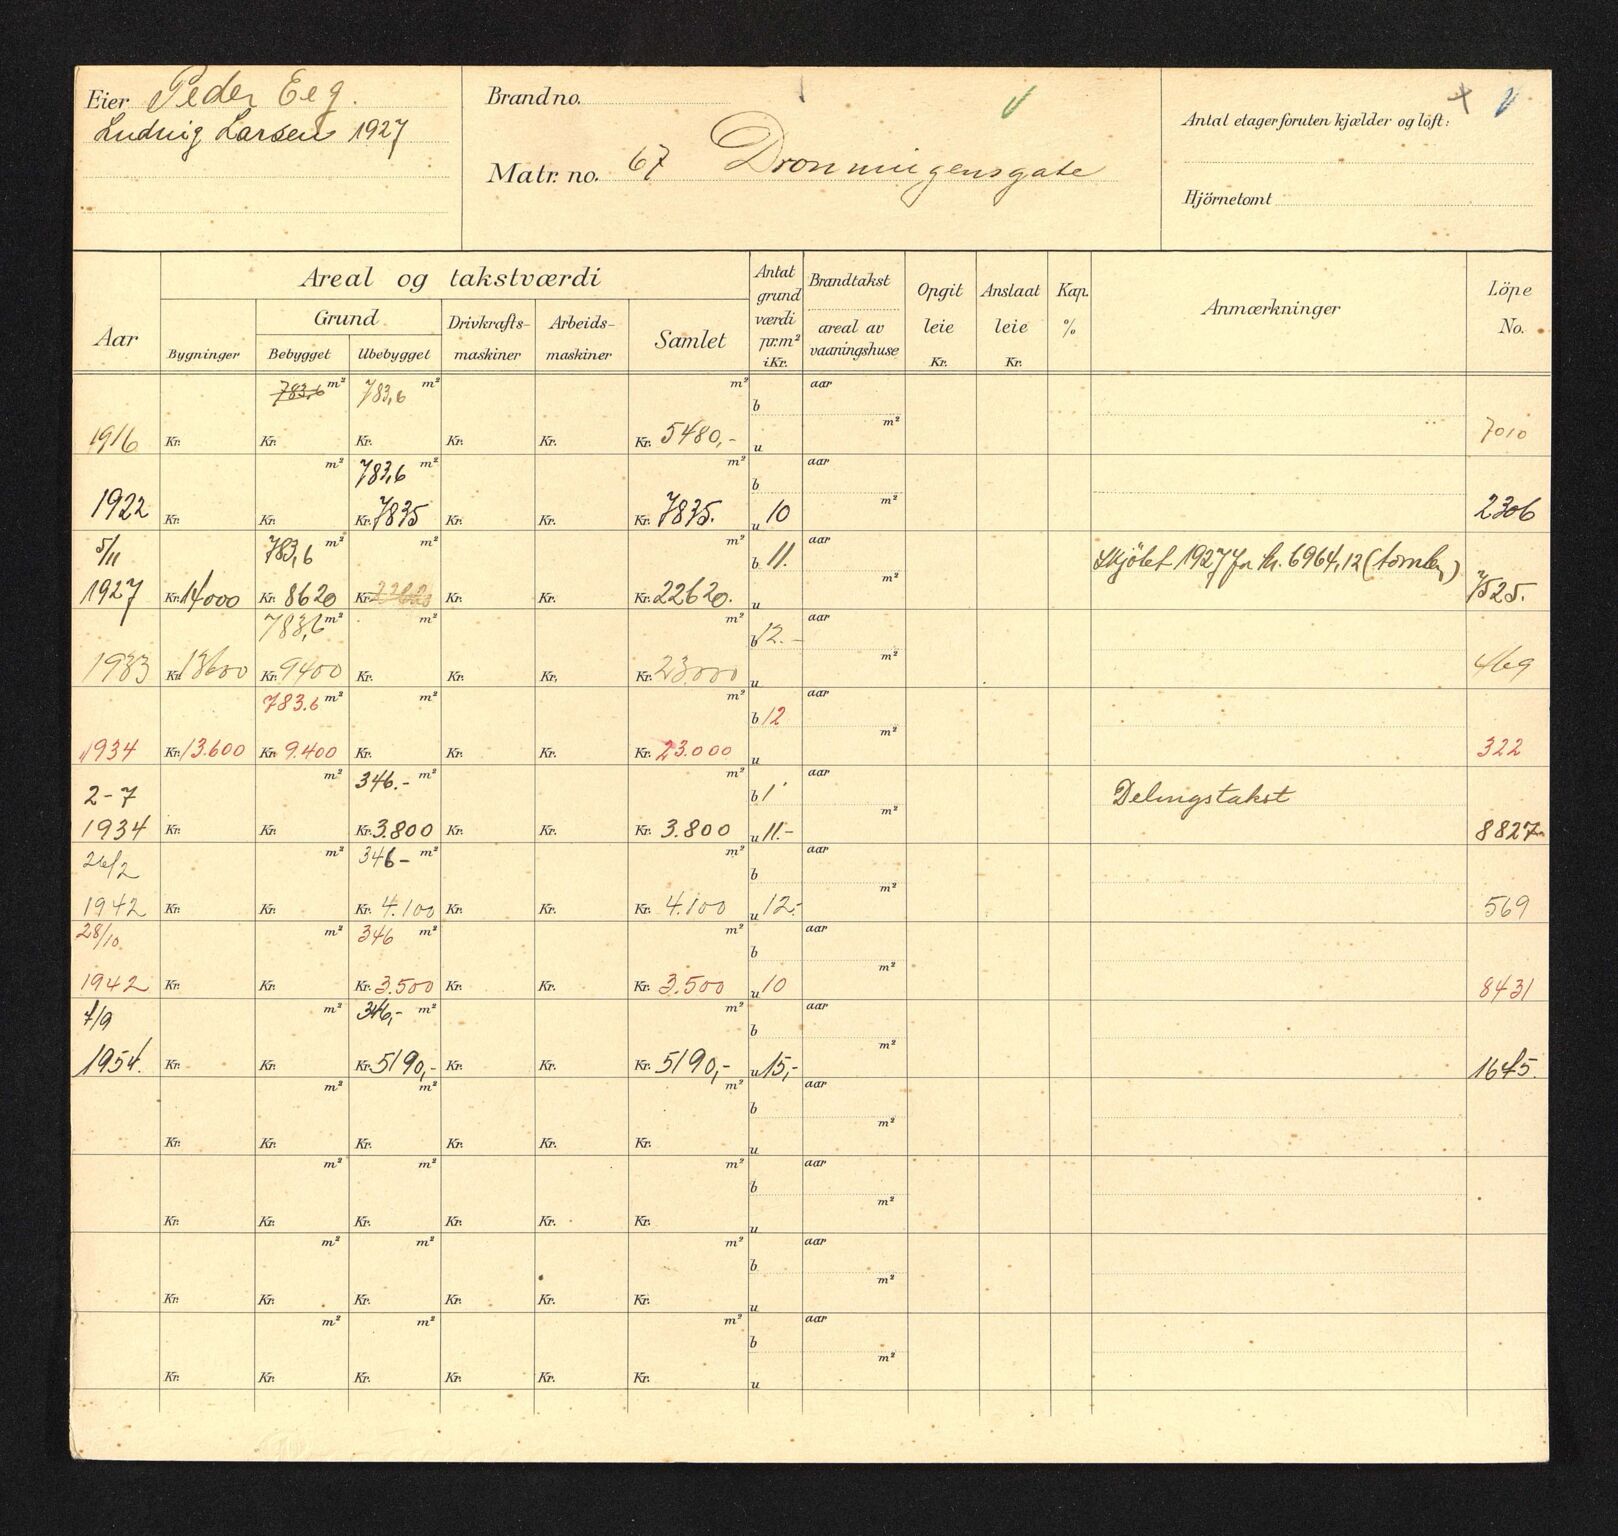 Eier Peder Eeg.
Ludvig Larsen 1927
Brandno.
Matr. no. 67 Dronningensgate
Antal etager foruten kjælder og loft:
Hjörnetomt
Aar
Areal og takstværdi
Bygninger
Grund
Bebygget
Ubebygget
Drivkrafts-
maskiner
Arbeids-
maskiner
Samlet
Antat
grund
værdi
pr. m²
i Kr.
Brandtakst
areal av
vaaningshuse
Opgit
leie
Kr.
Anslaat
leie
Kr.
Kap.
%
Anmærkninger
Löpe
No.
783,6 m² 783,6 m² m² b aar
m²
1916 Kr. Kr. Kr. Kr. Kr. Kr. 5480,- u 7010
m² 783,6 m² m² b aar
m²
1922 Kr. Kr. Kr. 7835 Kr. Kr. Kr. 7835. u 10 2306
5/11 783,6 m² m² m² b 11. aar Skjötet 1927 for kr. 6964,12 (tomten)
m²
1927 Kr. 14000 Kr. 8620 Kr. 22620 Kr. Kr. Kr. 22620. u 7525.
783,6 m² m² m² b 12.- aar
m²
1933 Kr. 13600 Kr. 9400 Kr. Kr. Kr. Kr. 23.000 u 469
783.6 m² m² m² b 12 aar
m²
1934 Kr. 13.600 Kr. 9.400 Kr. Kr. Kr. Kr. 23.000 u 322
2-7 m² 346.- m² m² b aar Delingstakst
m²
1934 Kr. Kr. Kr. 3.800 Kr. Kr. Kr. 3.800 u 11.- 8827
26/2 m² 346- m² m² b aar
m²
1942 Kr. Kr. Kr. 4.100 Kr. Kr. Kr. 4.100 u 12.- 569
28/10 m² 346 m² m² b aar
m²
1942 Kr. Kr. Kr. 3.500 Kr. Kr. Kr. 3.500 u 10 8431
7/9 m² 346,- m² m² b aar
m²
1954. Kr. Kr. Kr. 5190,- Kr. Kr. Kr. 5190,- u 15,- 1645.
m² m² m² b aar
m²
Kr. Kr. Kr. Kr. Kr. Kr. u
m² m² m² b aar
m²
Kr. Kr. Kr. Kr. Kr. Kr. u
m² m² m² b aar
m²
Kr. Kr. Kr. Kr. Kr. Kr. u
m² m² m² b aar
m²
Kr. Kr. Kr. Kr. Kr. Kr. u